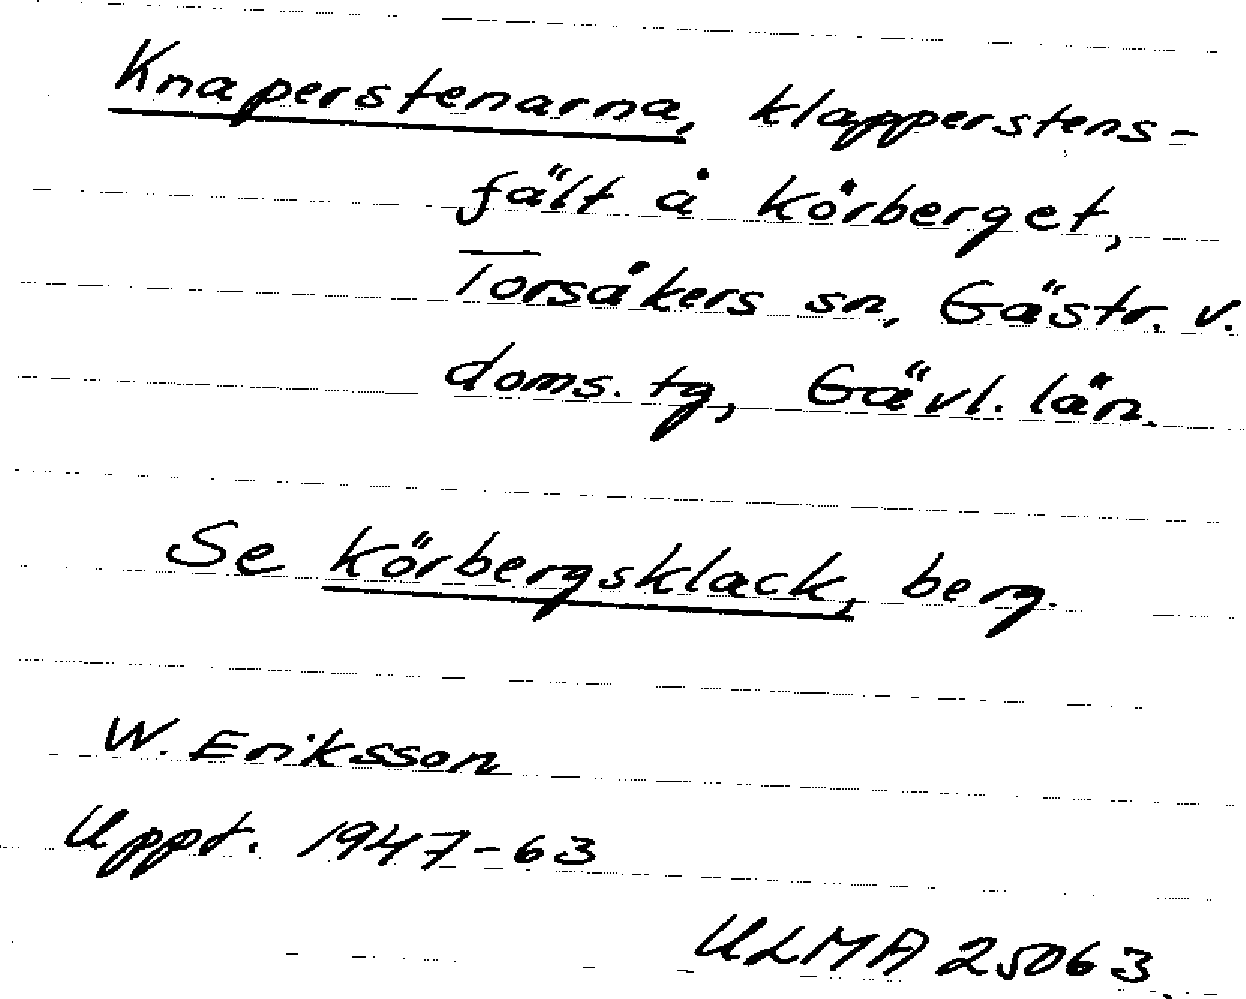 Knaperstenarna, klapperstens-
fält å Körberget,
Torsåkers sn, Gästr. v.
doms. tg, Gävl. län.
Se Körbergsklack, berg.
W. Eriksson
Uppt. 1947-63
ULMA 25063.